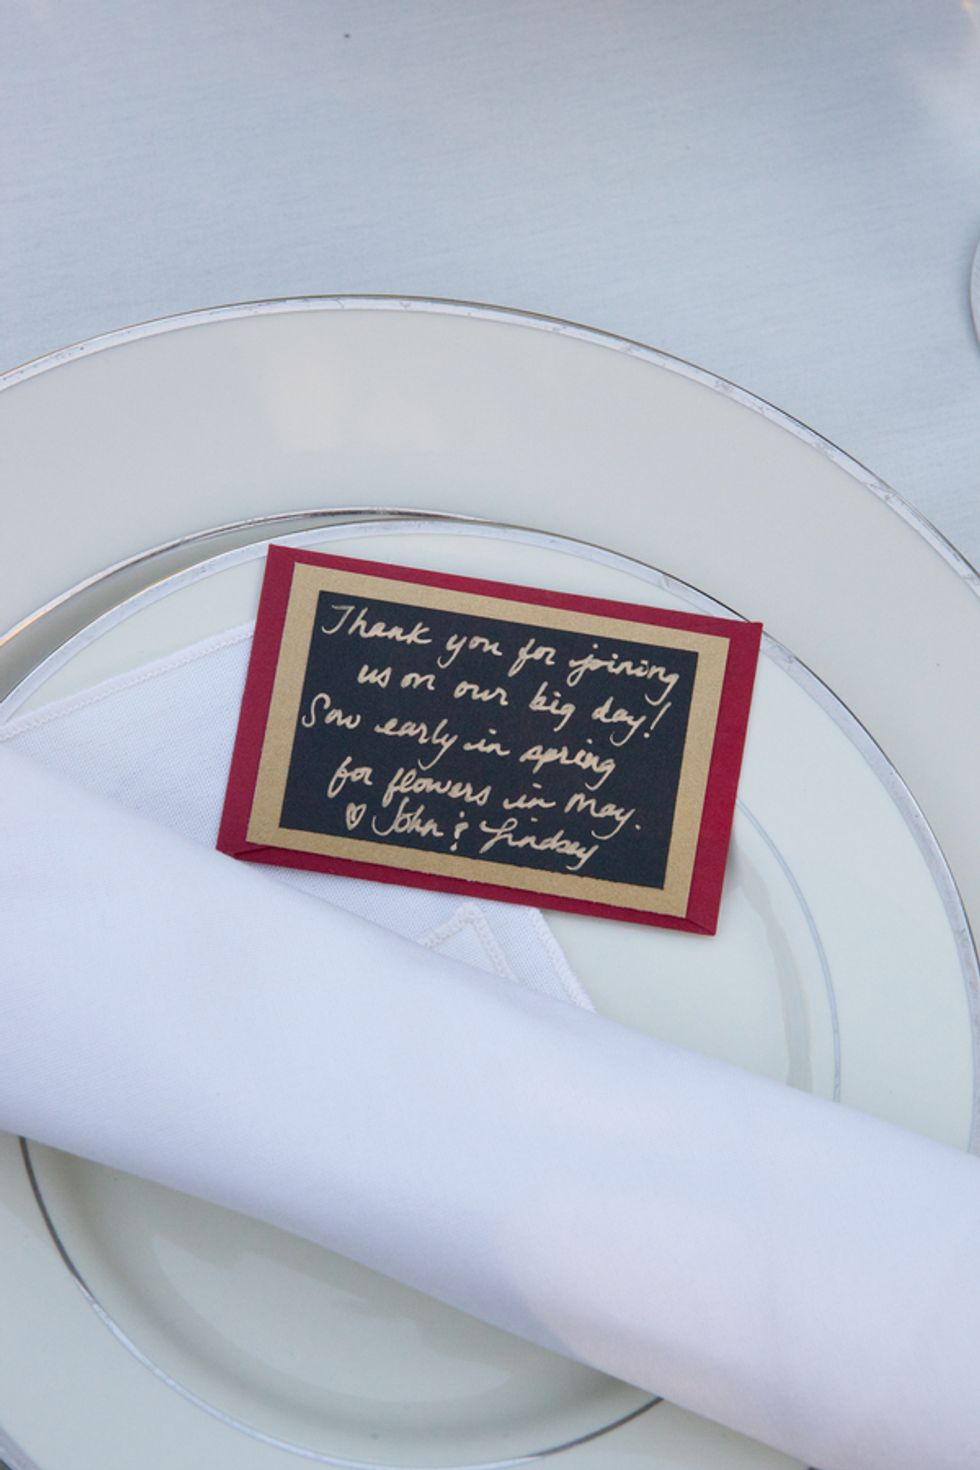 Thank you for joining
us on our big day!
Sow early in spring
for flowers in May.
♡ John & Lindsey